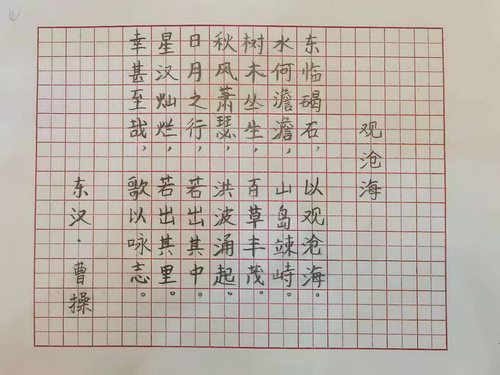 观沧海
东临碣石，以观沧海。
水何澹澹，山岛竦峙。
树木丛生，百草丰茂。
秋风萧瑟，洪波涌起。
日月之行，若出其中
星汉灿烂，若出其里。
幸甚至哉，歌以咏志。
东汉·曹操